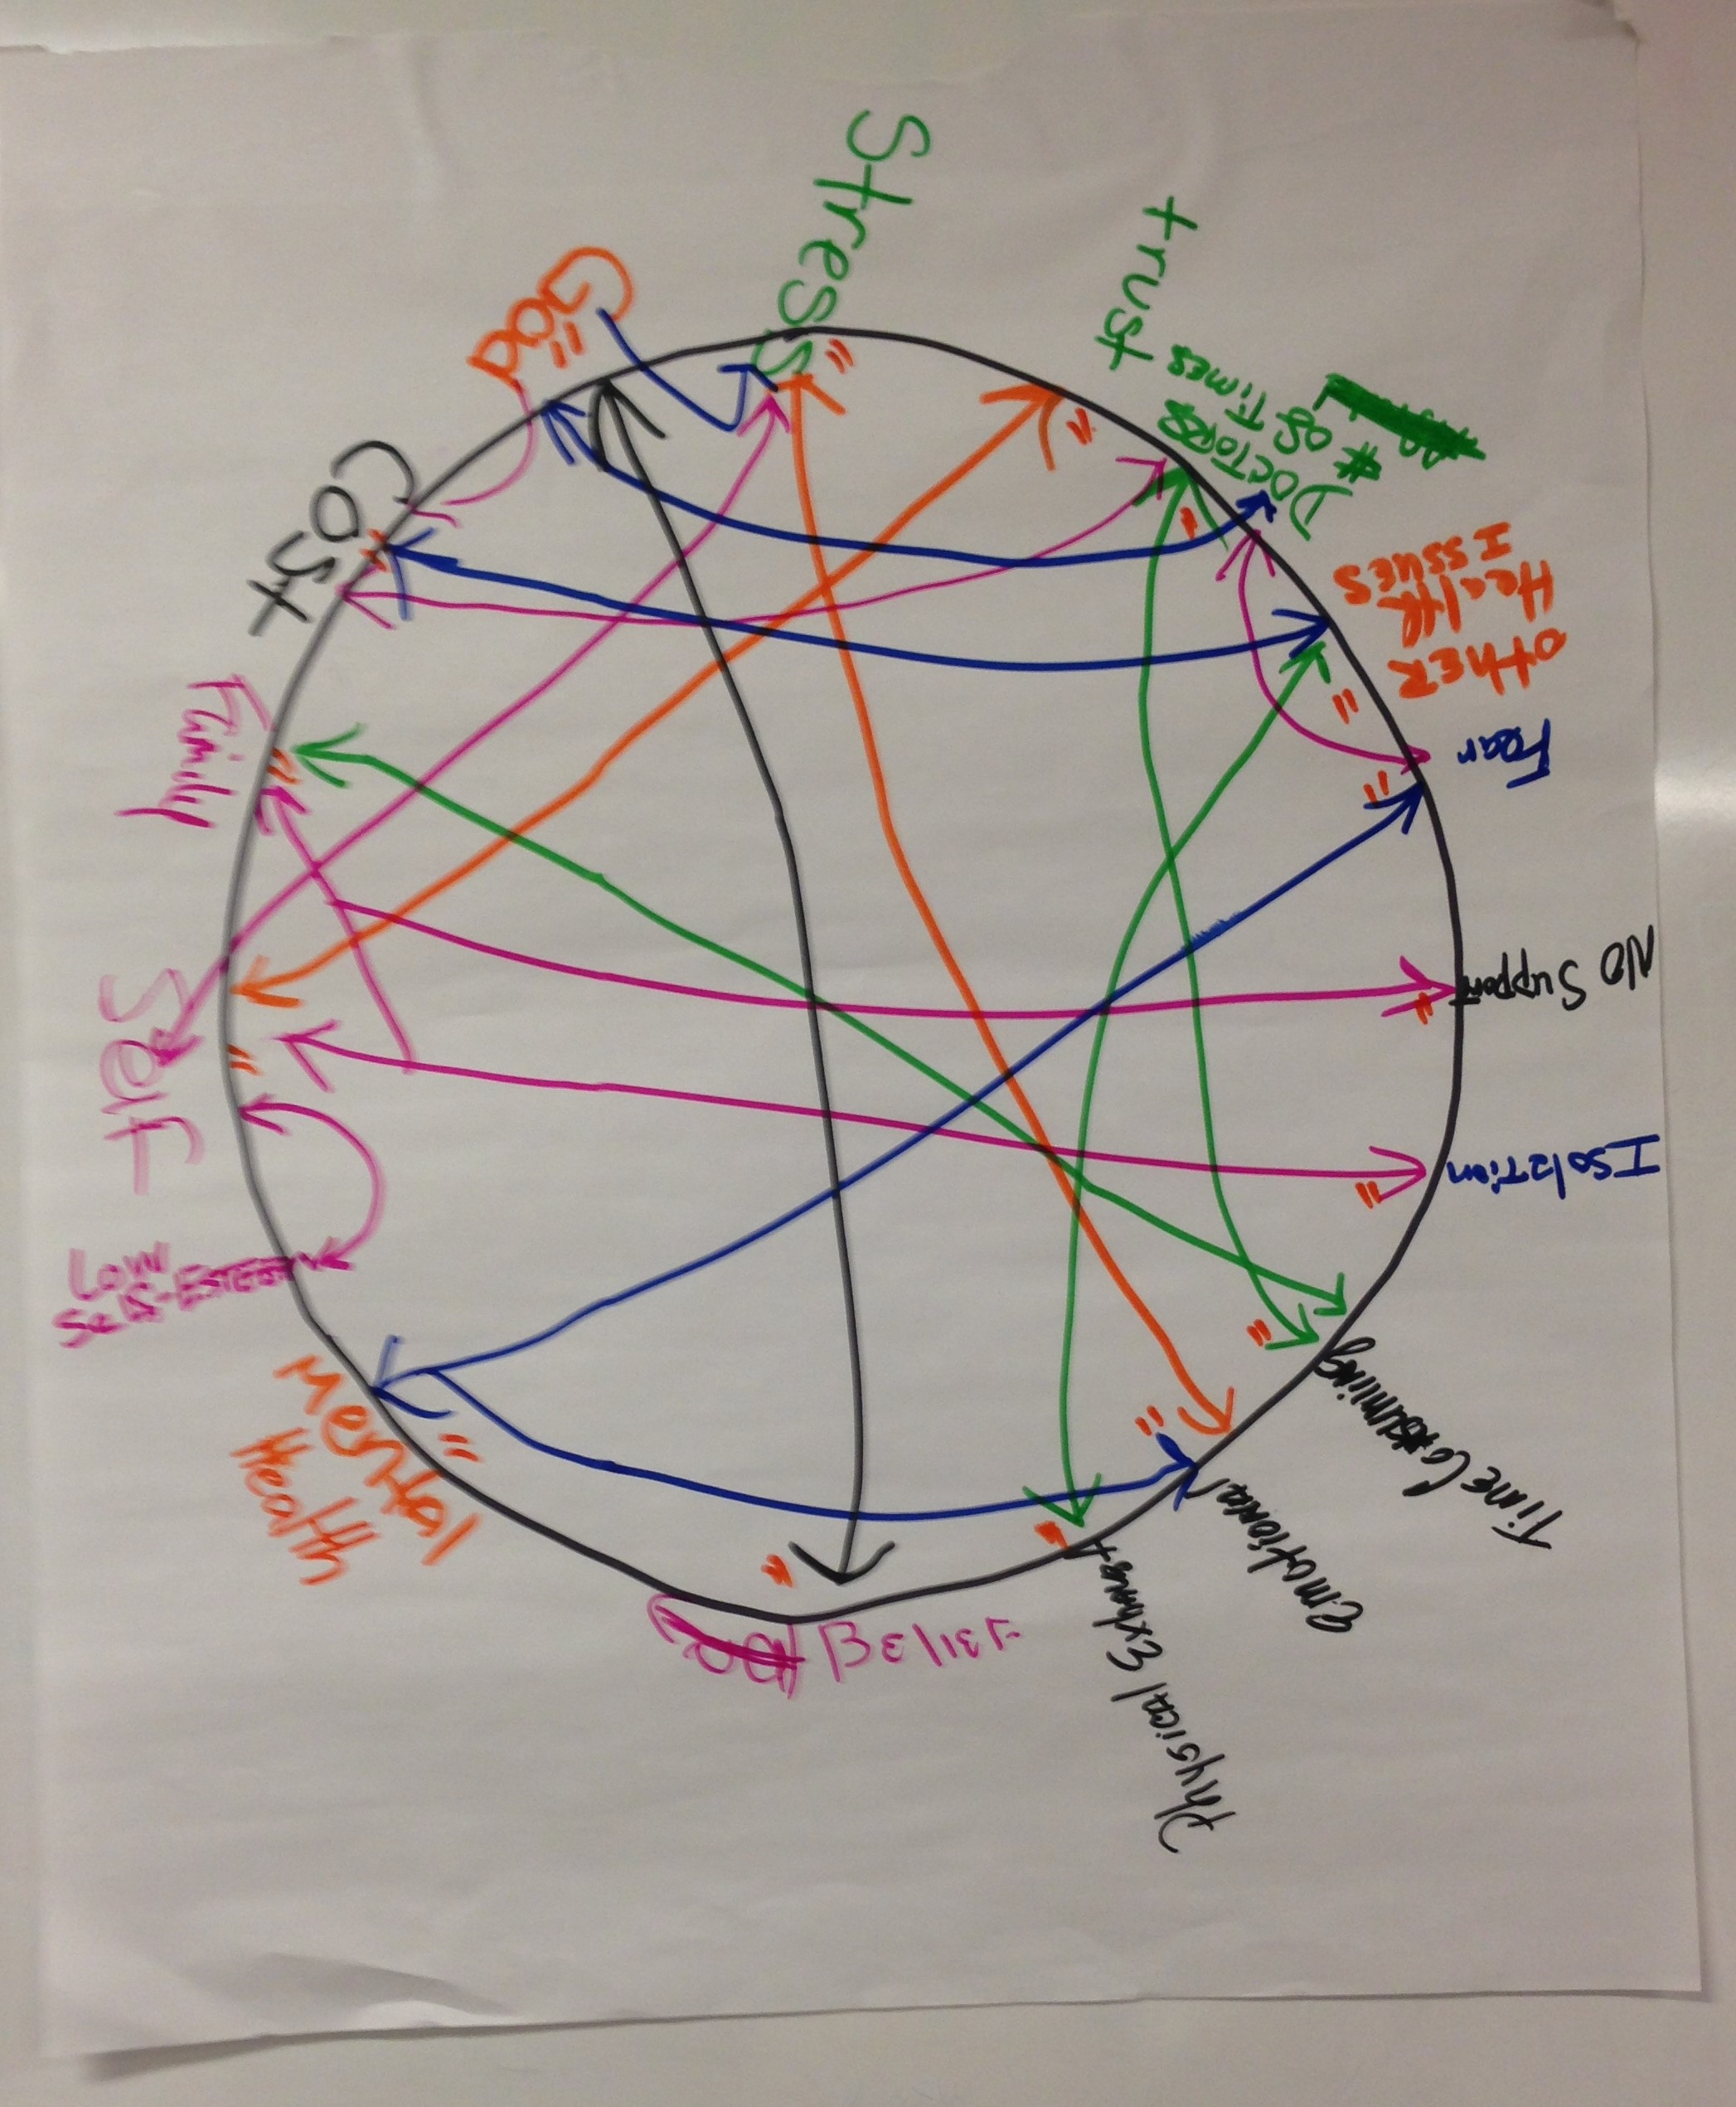 Stress
trust
# of Times
Doctors
Other
Health
Issues
Fear
No Support
Isolation
Time Consuming
Emotional
Physical Exhaust
Belief
Mental
Health
Low
Self-Esteem
Self
Family
Cost
God